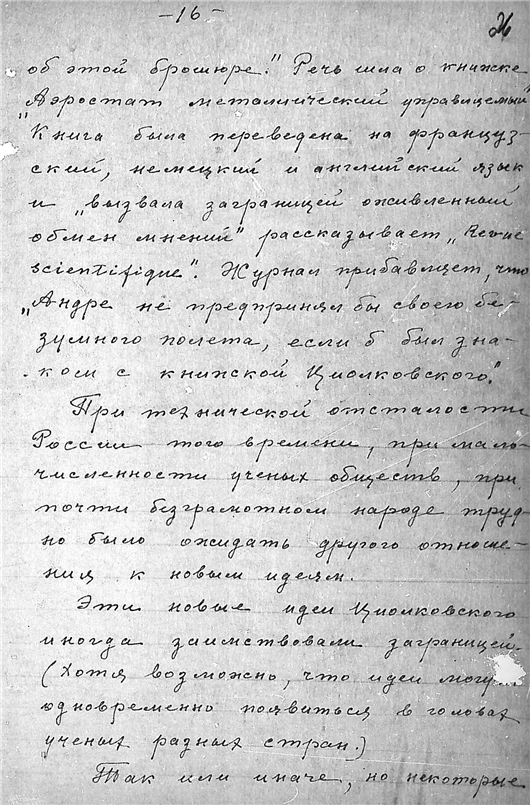 -16-
об этой брошюре." Речь шла о книжке
„Аэростат металлический управляемый"
Книга была переведена на француз
ский, немецкий и английский язык
и „вызвала заграницей оживленный
обмен мнений" рассказывает „Revue
scientifique". Журнал прибавляет, что
„Андре не предпринял бы своего бе-
зумного полета, если б был зна-
ком с книжкой Циолковского."
При технической отсталости
России того времени, при мало-
численности ученых обществ, при
почти безграмотном народе труд-
но было ожидать другого отноше-
ния к новым идеям.
Эти новые идеи Циолковского
иногда заимствовали заграницей.
(Хотя возможно, что идеи могут
одновременно появиться в головах
ученых разных стран.)
Так или иначе, но некоторые